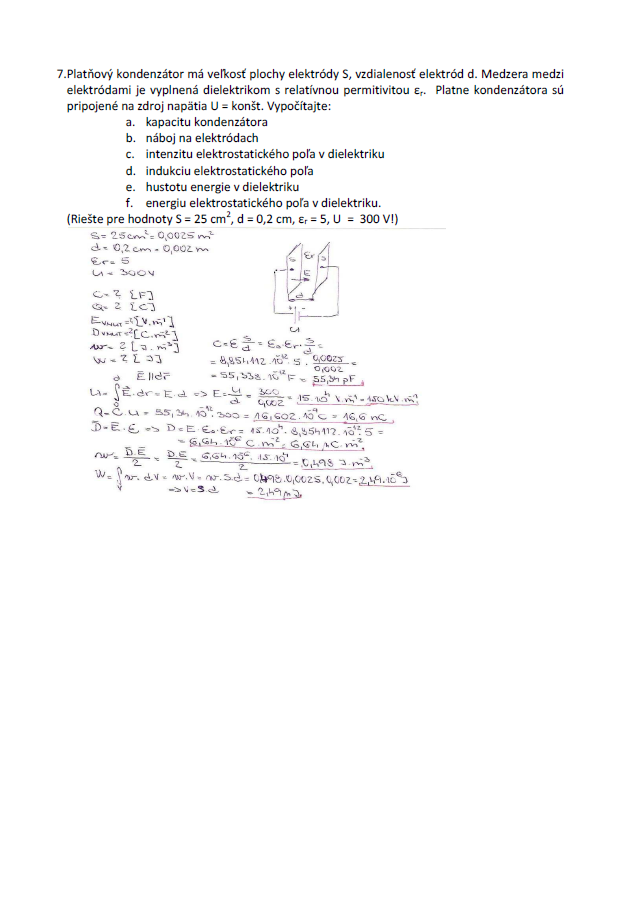 7.Platňový kondenzátor má veľkosť plochy elektródy S, vzdialenosť elektród d. Medzera medzi
elektródami je vyplnená dielektrikom s relatívnou permitivitou εr. Platne kondenzátora sú
pripojené na zdroj napätia U = konšt. Vypočítajte:
a. kapacitu kondenzátora
b. náboj na elektródach
c. intenzitu elektrostatického poľa v dielektriku
d. indukciu elektrostatického poľa
e. hustotu energie v dielektriku
f. energiu elektrostatického poľa v dielektriku.
(Riešte pre hodnoty S = 25 cm², d = 0,2 cm, εr = 5, U = 300 V!)
S = 25cm² = 0,0025 m²
d = 0,2cm = 0,002m
εr = 5
U = 300V
S εr S
E
d
+ -
U
C = ? [F]
Q = ? [C]
EVNUT = ? [V.m⁻¹]
DVNUT = ? [C.m⁻²]
w = ? [J.m⁻³]
W = ? [J]
C = ε S/d = ε0.εr. S/d =
= 8,854112.10⁻¹².5. 0,0025/0,002 =
= 55,338.10⁻¹² F = 55,34 pF
E||dr
U = ∫0d E.dr = E.d => E = U/d = 300/0,002 = 15.10⁴ V.m⁻¹ = 150 kV.m⁻¹
Q = C.U = 55,34.10⁻¹².300 = 16,602.10⁻⁹ C = 16,6 nC
D = E.ε => D = E.ε0.εr = 15.10⁴.8,854112.10⁻¹².5 =
= 6,64.10⁻⁶ C.m⁻² = 6,64 μC.m⁻²
w = D.E/2 = D.E/2 = 6,64.10⁻⁶.15.10⁴/2 = 0,498 J.m⁻³
W = ∫V w.dV = w.V = w.S.d = 0,498.0,0025.0,002 = 2,49.10⁻⁶ J
=> V = S.d = 2,49 μJ